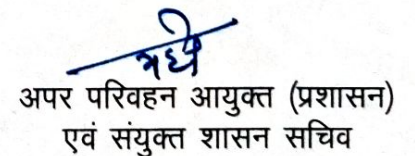 अपर परिवहन आयुक्त (प्रशासन)
एवं संयुक्त शासन सचिव